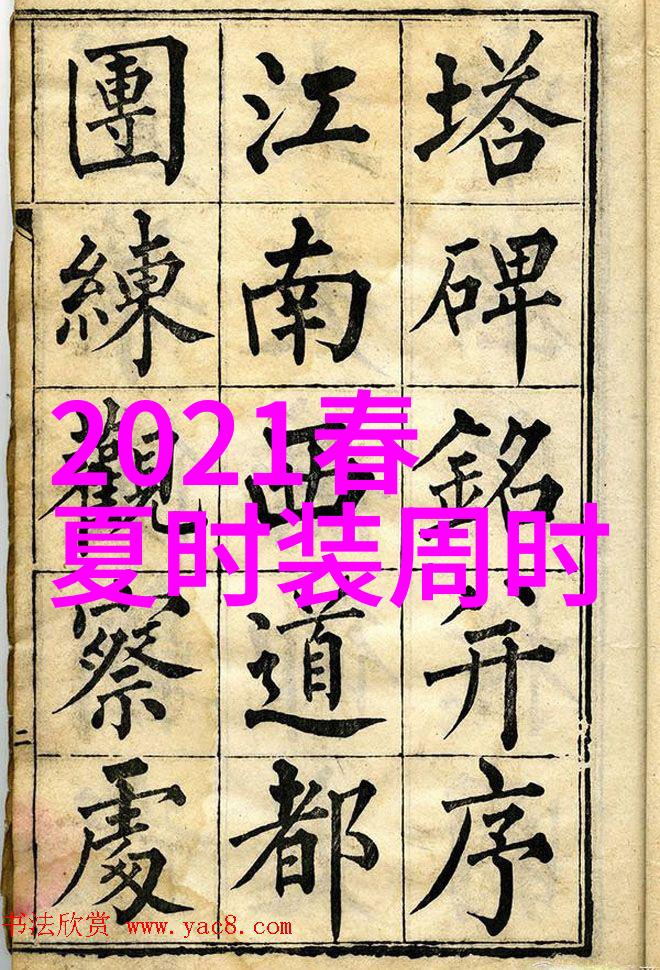 塔碑銘并序
江南西道都
團練觀察處
二
2021春
夏时装周时
书法欣赏 www.yac8.com